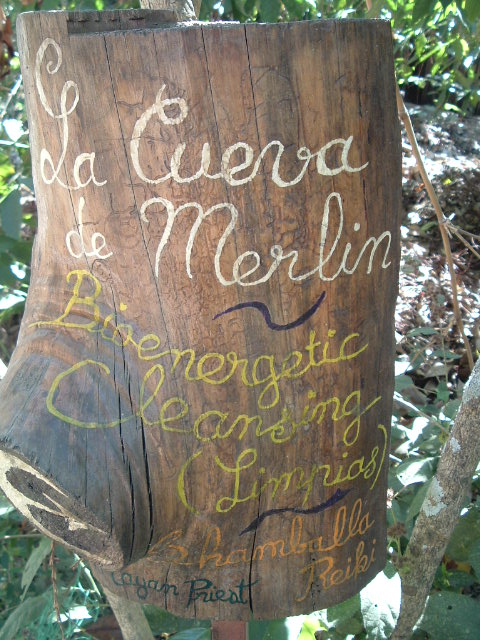 La Cueva
de Merlin
Bioenergetic
Cleansing
(Limpias)
Shamballa
Reiki
Mayan Priest